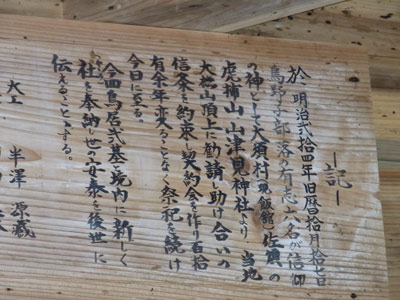 ―記―
於 明治弐拾四年旧暦拾月拾七日
鳥野子部落の有志六名が信仰
の神として大須村(現飯舘)佐須の
虎捕山山津見神社より 当地
大槻山頂に勧請し助け合いの
信条を約束し契約会を作り百拾
有余年変ることなく祭祀を続け
今日に至る。
今回鳥居弐基境内に新しく
社を奉納し世の安泰を後世に
伝えることとする。
大工 半澤 源蔵